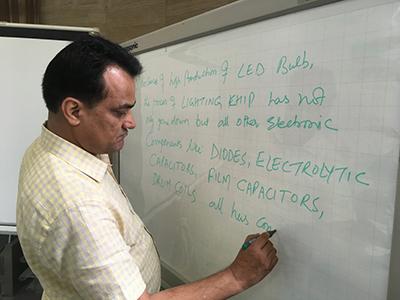 of high Production of LED Bulb,
the of LIGHTING KHIP has not
go down but all other Electronic
Components like DIODES, ELECTROLYTIC
CAPACITORS, FILM CAPACITORS,
DRUM COILS all has com